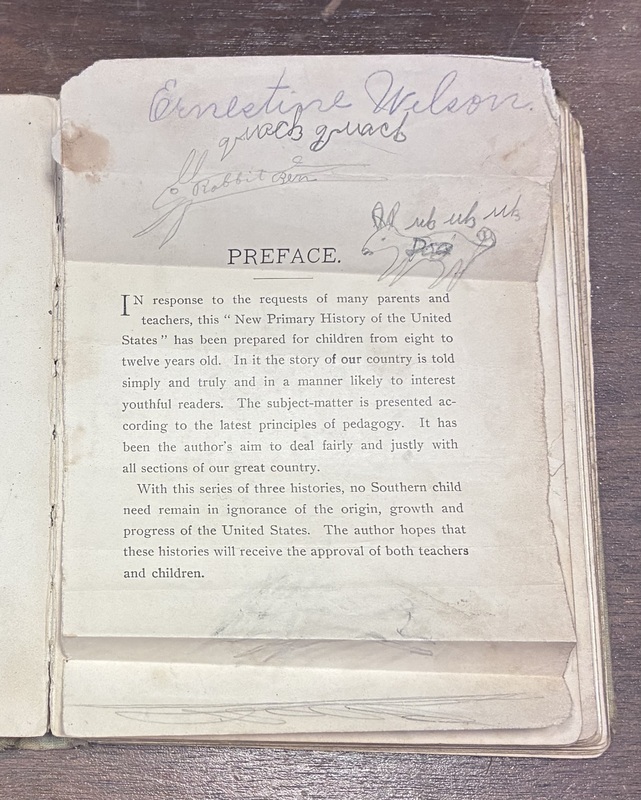 Ernestine Wilson.
quack quack
Rabbit Ben
uh uh uh
Dog
PREFACE.
IN response to the requests of many parents and
teachers, this " New Primary History of the United
States " has been prepared for children from eight to
twelve years old. In it the story of our country is told
simply and truly and in a manner likely to interest
youthful readers. The subject-matter is presented ac-
cording to the latest principles of pedagogy. It has
been the author's aim to deal fairly and justly with
all sections of our great country.
With this series of three histories, no Southern child
need remain in ignorance of the origin, growth and
progress of the United States. The author hopes that
these histories will receive the approval of both teachers
and children.